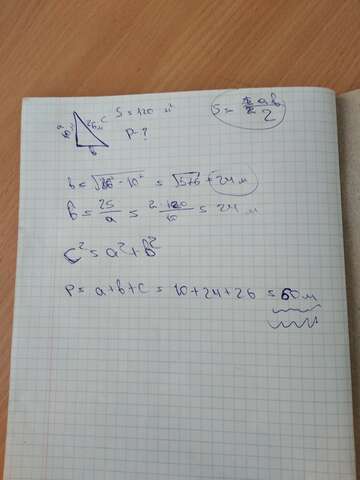 a 10 26 м c S = 120 м² S = ab/2
b P - ?
b = √26² - 10² = √576 = 24 м
b = 2S/a = 2·120/10 = 24 м
c² = a² + b²
P = a + b + c = 10 + 24 + 26 = 60 м